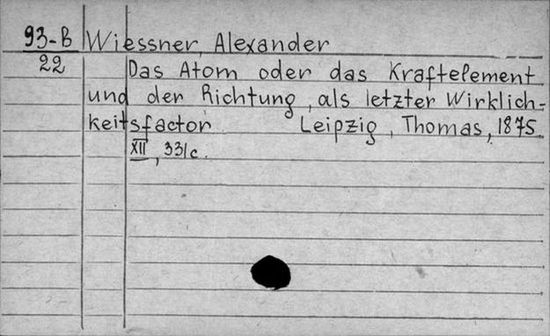 93-B Wiessner, Alexander
22 Das Atom oder das Kraftelement
und der Richtung, als letzter Wirklich=
keitsfactor Leipzig, Thomas, 1875.
XII, 331c.